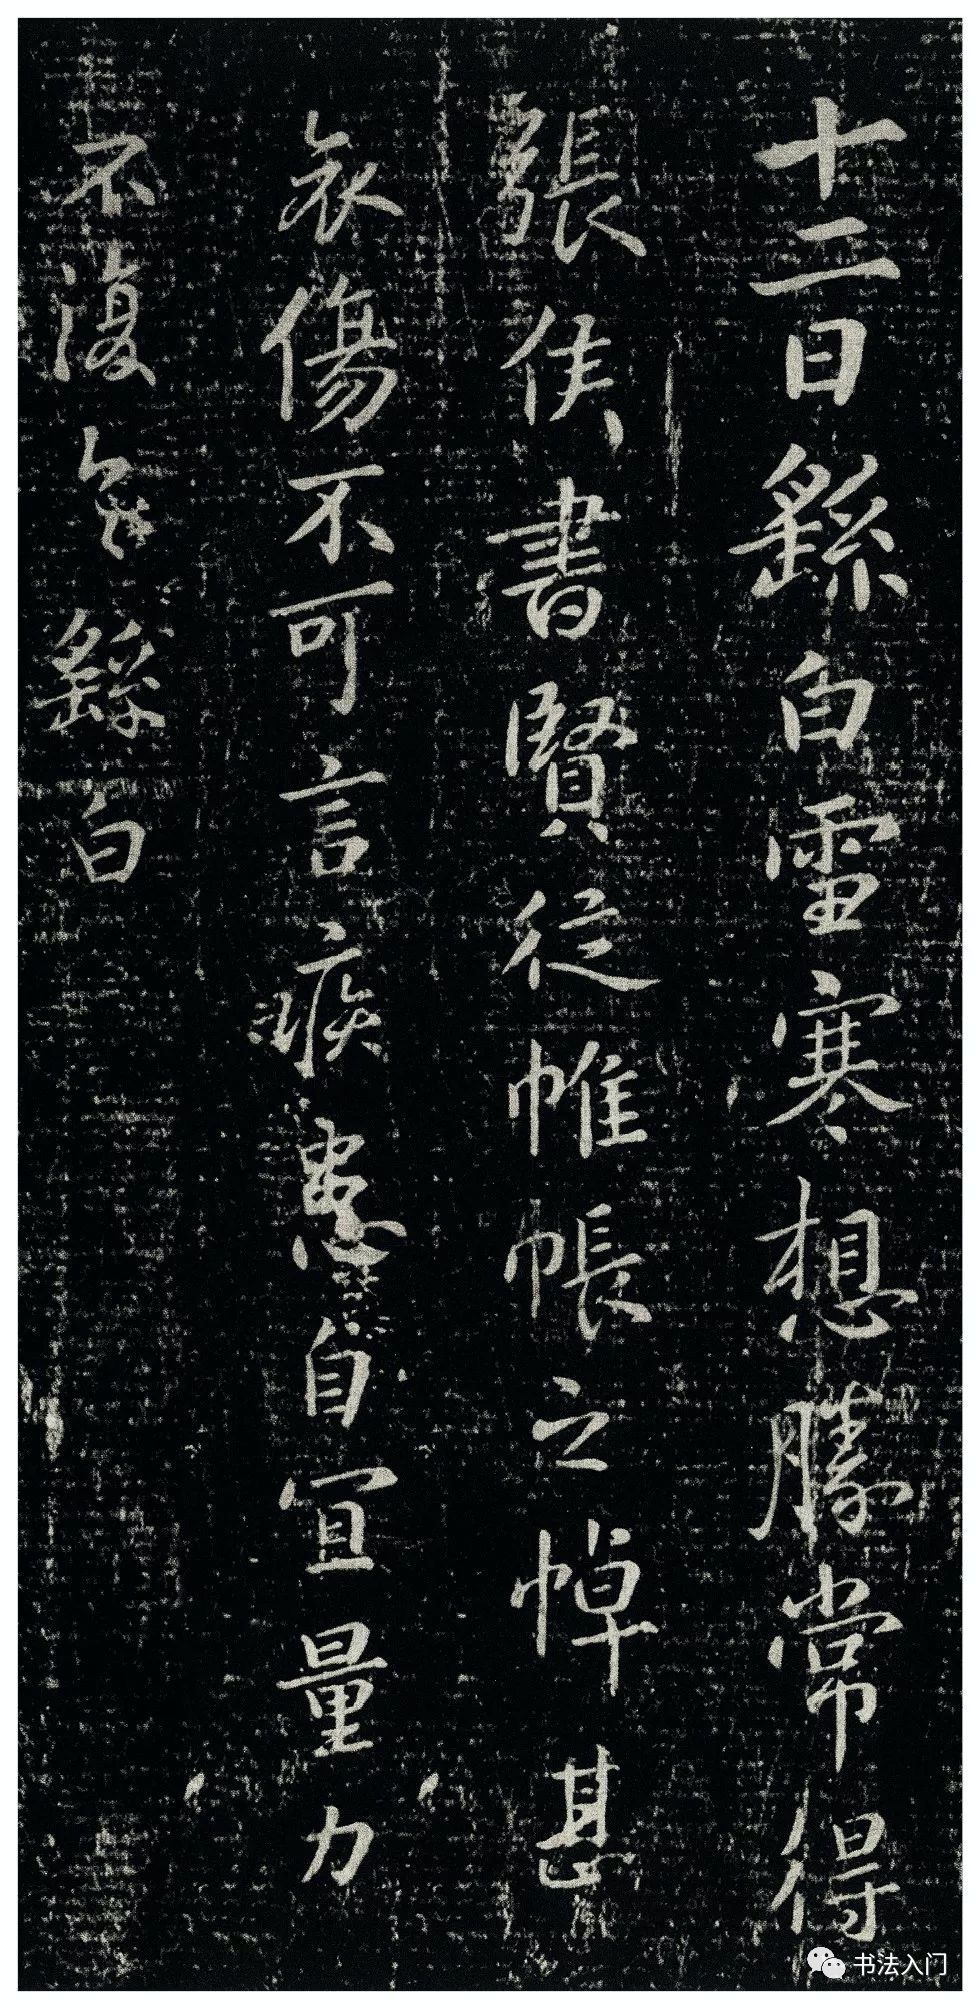 十二日繇白雪寒想勝常得
張侯書賢從帷帳之悼甚
哀傷不可言疾患自宜量力
不復繇白
书法入门